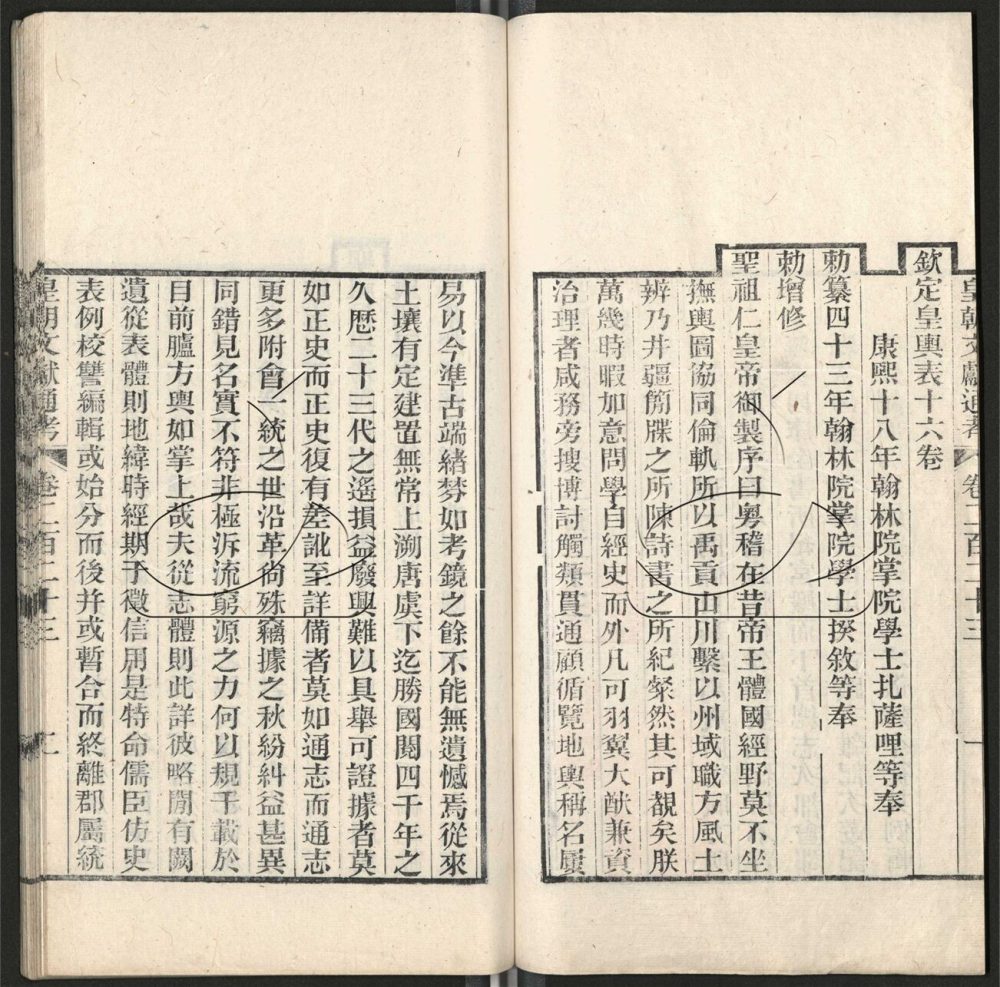 皇朝文獻通考 卷二百二十三 一
欽定皇輿表十六卷
康熙十八年翰林院掌院學士扎薩哩等奉
勅纂四十三年翰林院掌院學士揆敘等奉
勅增修
聖祖仁皇帝御製序曰粵稽在昔帝王體國經野莫不坐
撫輿圖協同倫軌所以禹貢山川繫以州域職方風土
辨乃井疆簡牒之所陳詩書之所紀粲然其可覩矣朕
萬幾時暇加意問學自經史而外凡可羽翼大猷兼資
治理者咸務旁搜博討觸類貫通顧循覽地輿稱名屢
易以今準古端緒棼如考鏡之餘不能無遺憾焉從來
土壤有定建置無常上溯唐虞下迄勝國閱四千年之
久歷二十三代之遥損益廢興難以具舉可證據者莫
如正史而正史復有差訛至詳備者莫如通志而通志
更多附會一統之世沿革尚殊竊據之秋紛糾益甚異
同錯見名實不符非極泝流窮源之力何以規千載於
目前臚方輿如掌上哉夫從志體則此詳彼略間有闕
遺從表體則地緯時經期于徵信用是特命儒臣仿史
表例校讐編輯或始分而後并或暫合而終離郡屬統
皇朝文獻通考 卷二百二十三